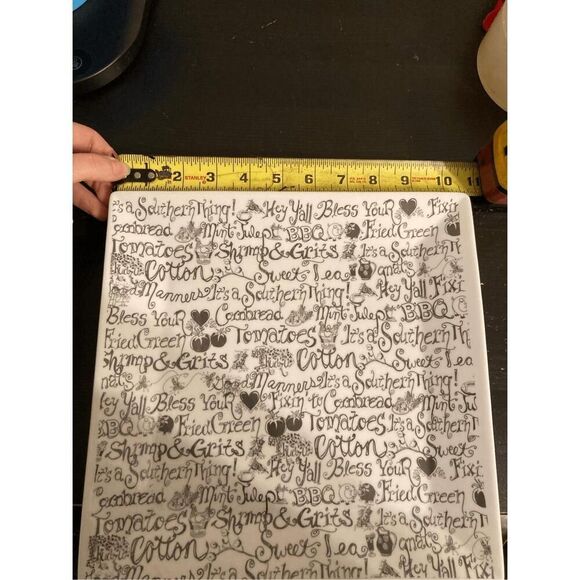 2 STANLEY 3 4 5 6 7 8 9 10 11
It's a Southern Thing! Hey Y'all Bless Your Fixin
Cornbread Mint Julep BBQ Fried Green
Tomatoes Shrimp & Grits gnats
Cotton Sweet Tea
Good Manners It's a Southern Thing! Hey Y'all Fixi
Bless Your Cornbread Mint Julep BBQ
Fried Green Tomatoes It's a Southern Th
Shrimp & Grits Cotton Sweet Tea
gnats Good Manners It's a Southern Thing!
Hey Y'all Bless Your Fixin' to Cornbread Mint Ju
BBQ Fried Green Tomatoes It's a Southern
Shrimp & Grits Cotton Sweet
It's a Southern Thing! Hey Y'all Bless Your Fixi
Cornbread Mint Julep BBQ Fried Green
Tomatoes Shrimp & Grits It's a Southern T
Cotton Sweet Tea gnats
Good Manners It's a Southern Thing! Hey Y'all Fixi